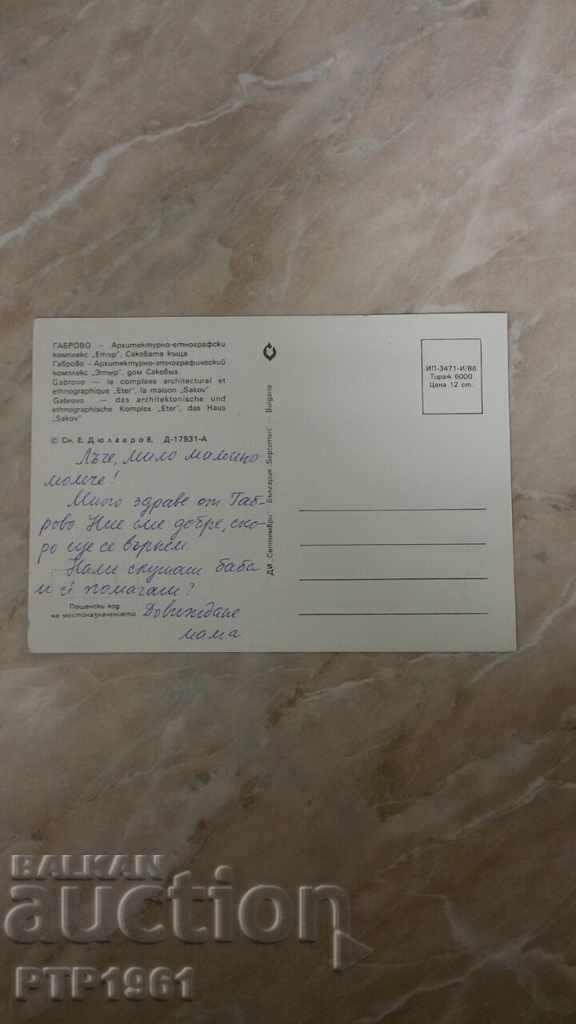 ГАБРОВО — Архитектурно-етнографски
комплекс „Етър“. Саковата къща
Габрово — Архитектурно-этнографический
комплекс „Этър“, дом Саковых
Gabrovo — le complexe architectural et
ethnographique „Eter“, la maison „Sakov“
Gabrovo — das architektonische und
ethnographische Komplex „Eter“, das Haus
„Sakov“
© Сн. Е. Дюлгеров, Д-17931-А
Лъче, мило маминно
момче!
Много здраве от Габ-
рово. Ние сме добре, ско-
ро ще се върнем.
Нали слушаш баба
и ѝ помагаш?
Пощенски код
на местоназначението
Довиждане
мама
ДИ „Септември“ България „Septemvri“ — Bulgarie
ИП-3471-И/86
Тираж 6000
Цена 12 ст.
BALKAN
auction
PTP1961